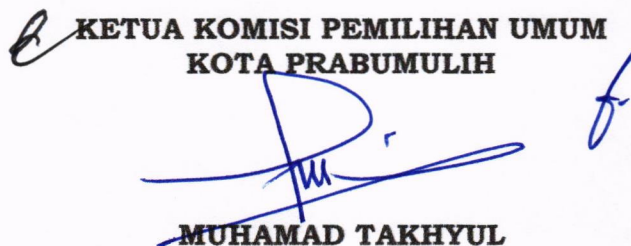 KETUA KOMISI PEMILIHAN UMUM
KOTA PRABUMULIH
MUHAMAD TAKHYUL